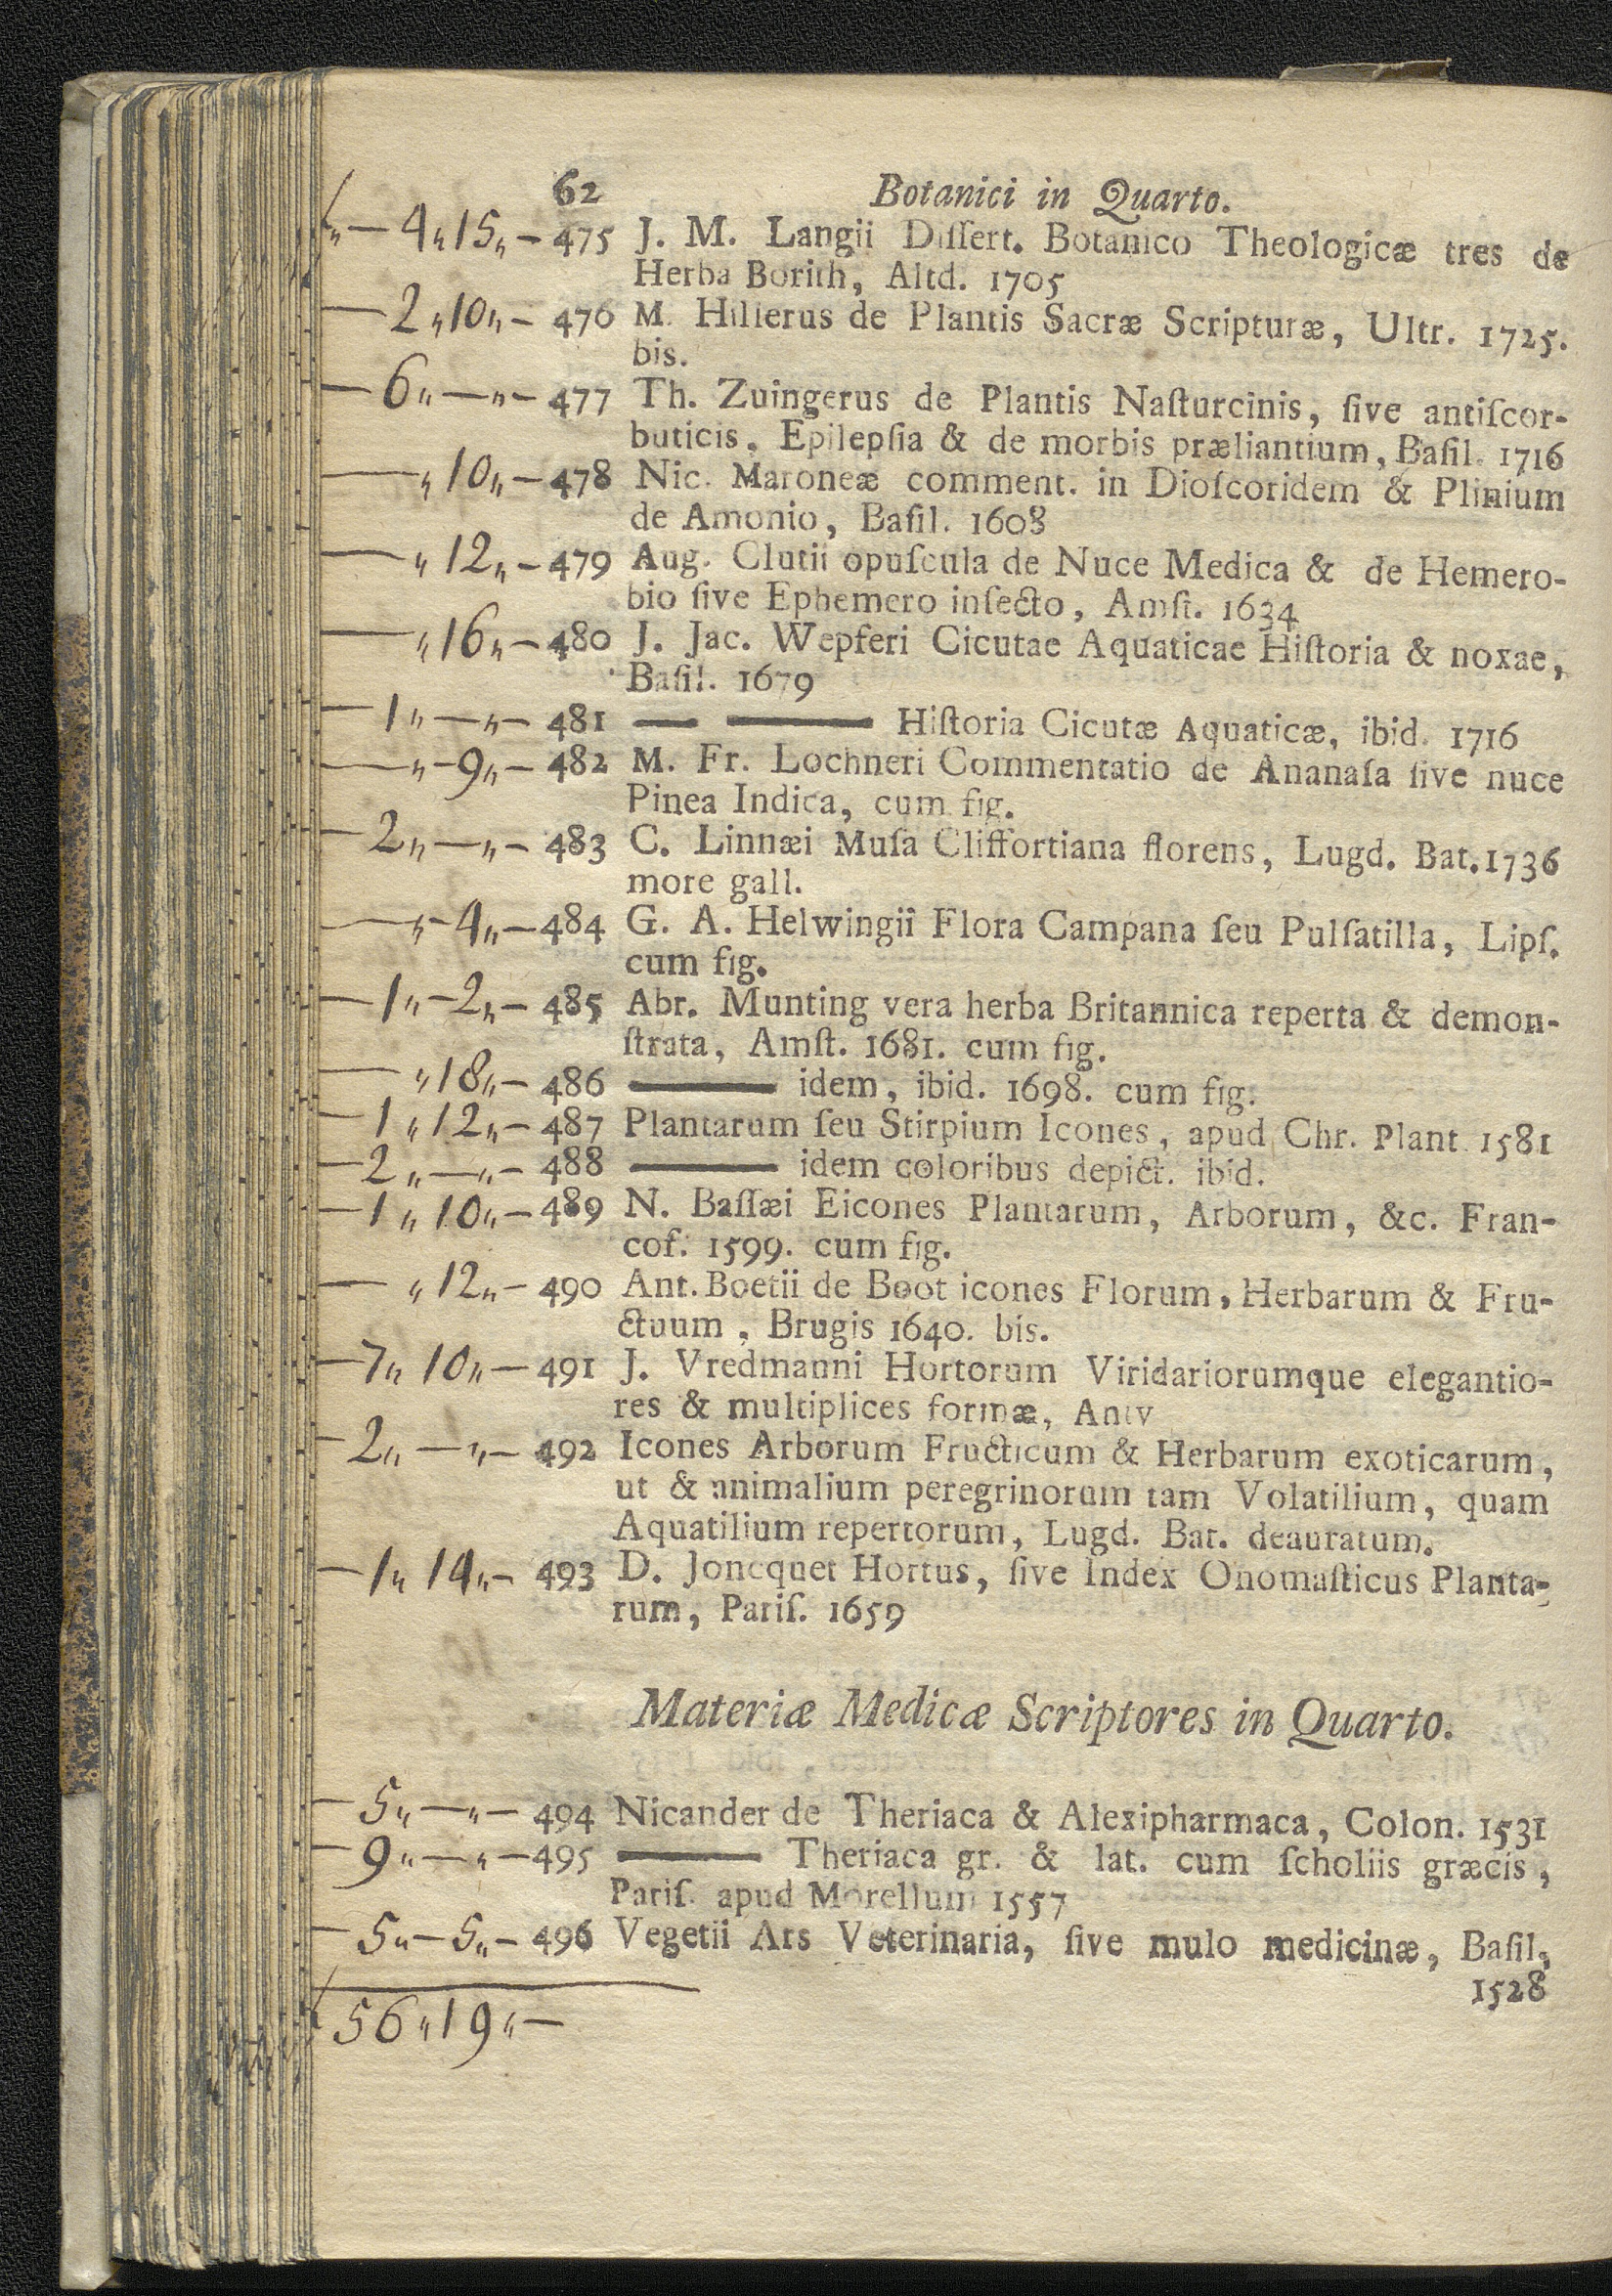 62 Botanici in Quarto.
„— 4„15„— 475 J. M. Langii Diſſert. Botanico Theologicæ tres de
Herba Borith, Altd. 1705
— 2„10„— 476 M. Hillerus de Plantis Sacræ Scripturæ, Ultr. 1725.
bis.
— 6„—„— 477 Th. Zuingerus de Plantis Naſturcinis, ſive antiſcor-
buticis, Epilepſia & de morbis præliantium, Baſil. 1716
— „10„— 478 Nic. Maroneæ comment. in Dioſcoridem & Plinium
de Amonio, Baſil. 1608
— „12„— 479 Aug. Clutii opuſcula de Nuce Medica & de Hemero-
bio ſive Ephemero inſecto, Amſt. 1634
— „16„— 480 J. Jac. Wepferi Cicutae Aquaticae Hiſtoria & noxae,
Baſil. 1679
— 1„—„— 481 — — Hiſtoria Cicutæ Aquaticæ, ibid. 1716
— „-9„— 482 M. Fr. Lochneri Commentatio de Ananaſa ſive nuce
Pinea Indica, cum fig.
— 2„—„— 483 C. Linnæi Muſa Cliffortiana florens, Lugd. Bat. 1736
more gall.
— „-4„— 484 G. A. Helwingii Flora Campana ſeu Pulſatilla, Lipſ.
cum fig.
— 1„-2„— 485 Abr. Munting vera herba Britannica reperta & demon-
ſtrata, Amſt. 1681. cum fig.
— „18„— 486 — idem, ibid. 1698. cum fig.
— 1„12„— 487 Plantarum ſeu Stirpium Icones, apud Chr. Plant. 1581
— 2„—„— 488 — idem coloribus depict. ibid.
— 1„10„— 489 N. Baſſæi Eicones Plantarum, Arborum, &c. Fran-
cof. 1599. cum fig.
— „12„— 490 Ant. Boetii de Boot icones Florum, Herbarum & Fru-
ctuum, Brugis 1640. bis.
— 7„10„— 491 J. Vredmanni Hortorum Viridariorumque elegantio-
res & multiplices formæ, Antv
— 2„—„— 492 Icones Arborum Fructicum & Herbarum exoticarum,
ut & animalium peregrinorum tam Volatilium, quam
Aquatilium repertorum, Lugd. Bat. deauratum.
— 1„14„— 493 D. Joncquet Hortus, ſive Index Onomaſticus Planta-
rum, Pariſ. 1659
Materiæ Medicæ Scriptores in Quarto.
— 5„—„— 494 Nicander de Theriaca & Alexipharmaca, Colon. 1531
— 9„—„— 495 — Theriaca gr. & lat. cum ſcholiis græcis,
Pariſ. apud Morellum 1557
— 5„-5„— 496 Vegetii Ars Veterinaria, ſive mulo medicinæ, Baſil,
1528
56„19„—